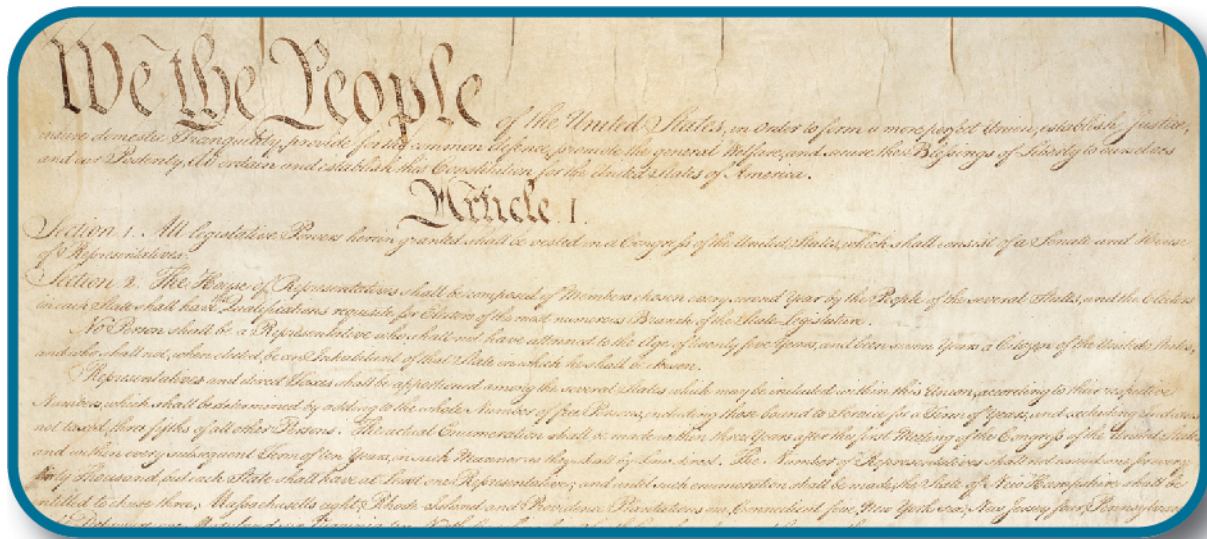 We the People of the United States, in Order to form a more perfect Union, establish Justice,
insure domestic Tranquility, provide for the common defence, promote the general Welfare, and secure the Blessings of Liberty to ourselves
and our Posterity, do ordain and establish this Constitution for the United States of America.
Article. I.
Section. 1. All legislative Powers herein granted shall be vested in a Congress of the United States, which shall consist of a Senate and House
of Representatives.
Section. 2. The House of Representatives shall be composed of Members chosen every second Year by the People of the several States, and the Electors
in each State shall have Qualifications requisite for Electors of the most numerous Branch of the State Legislature.
No Person shall be a Representative who shall not have attained to the Age of twenty five Years, and been seven Years a Citizen of the United States,
and who shall not, when elected, be an Inhabitant of that State in which he shall be chosen.
Representatives and direct Taxes shall be apportioned among the several States which may be included within this Union, according to their respective
Numbers, which shall be determined by adding to the whole Number of free Persons, including those bound to Service for a Term of Years, and excluding Indians
not taxed, three fifths of all other Persons. The actual Enumeration shall be made within three Years after the first Meeting of the Congress of the United States,
and within every subsequent Term of ten Years, in such Manner as they shall by Law direct. The Number of Representatives shall not exceed one for every
thirty Thousand, but each State shall have at Least one Representative; and until such enumeration shall be made, the State of New Hampshire shall be
entitled to chuse three, Massachusetts eight, Rhode-Island and Providence Plantations one, Connecticut five, New-York six, New Jersey four, Pennsylvania